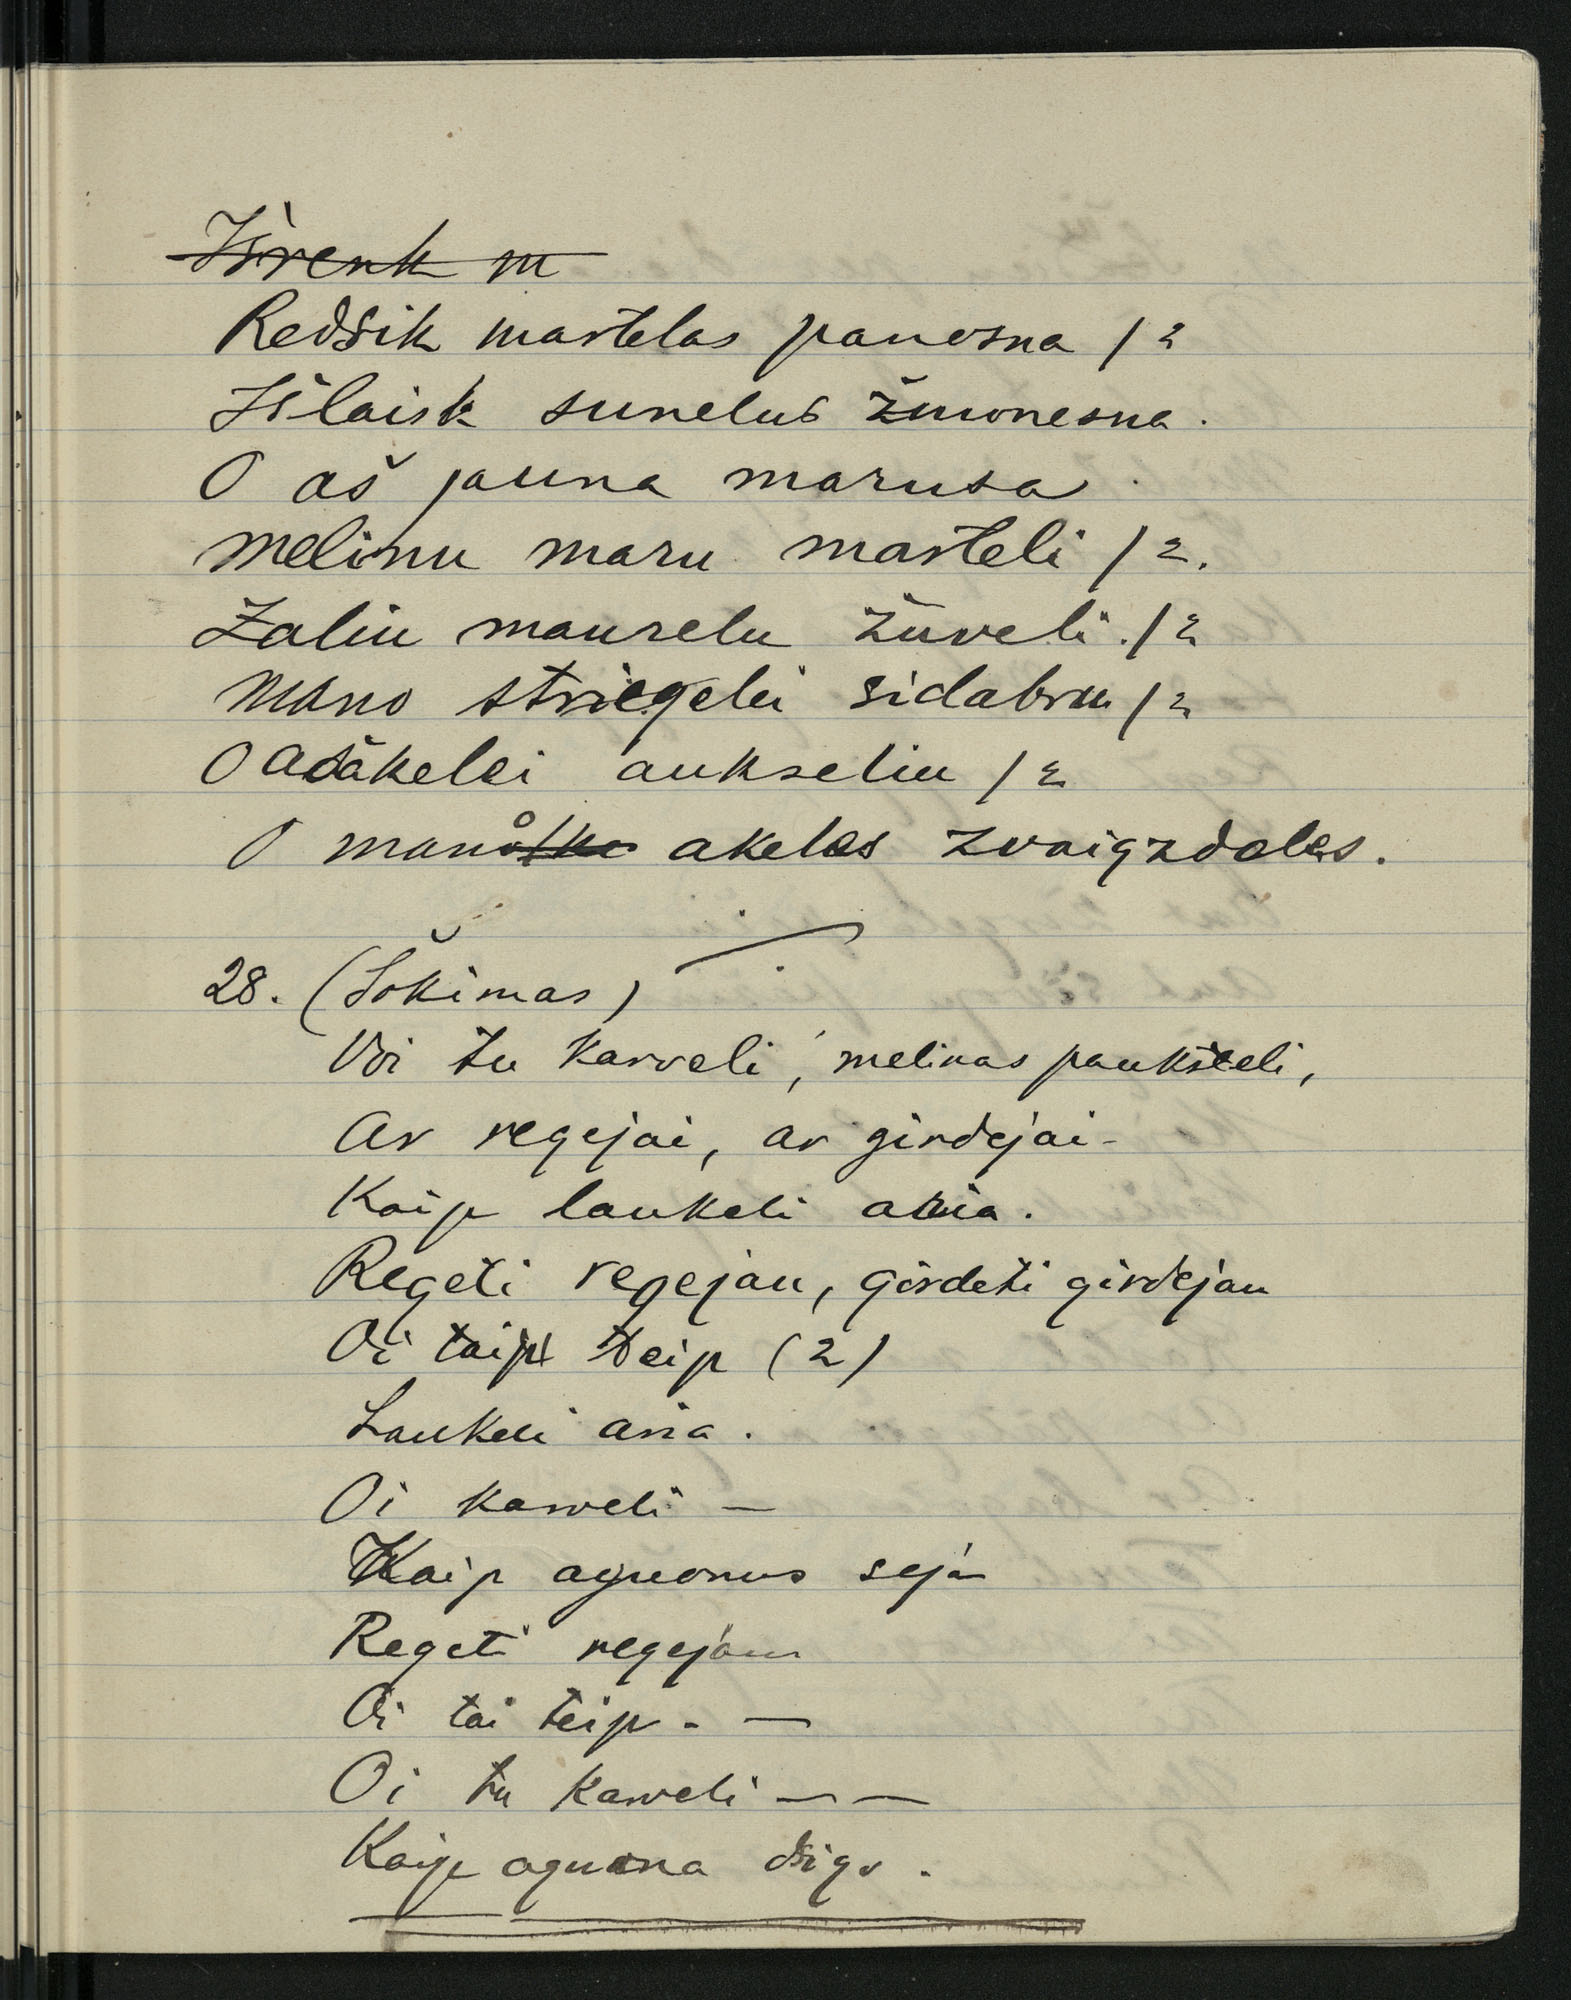 Išrenk m
Redšik martelas panosna /2
Išlaisk sunelus žmonesna.
O aš jauna marusa
melinu maru marteli /2.
Žaliu maurelu žuveli. /2
Mano striegelei sidabru /2
O ašakelei aukseliu /2
O mano akelas zvaigzdelas.
28. (Šokimas)
Voi tu karveli, melinas paukšteli,
Ar regejai, ar girdejai-
Kaip laukeli aria.
Regeti regejau, girdeti girdejau
Oi taip teip (2)
Laukeli aria.
Oi karveli —
Kaip aguonus seja
Regeti regejau
Oi tai teip. —
Oi tu karveli — —
Kaip aguona digo.